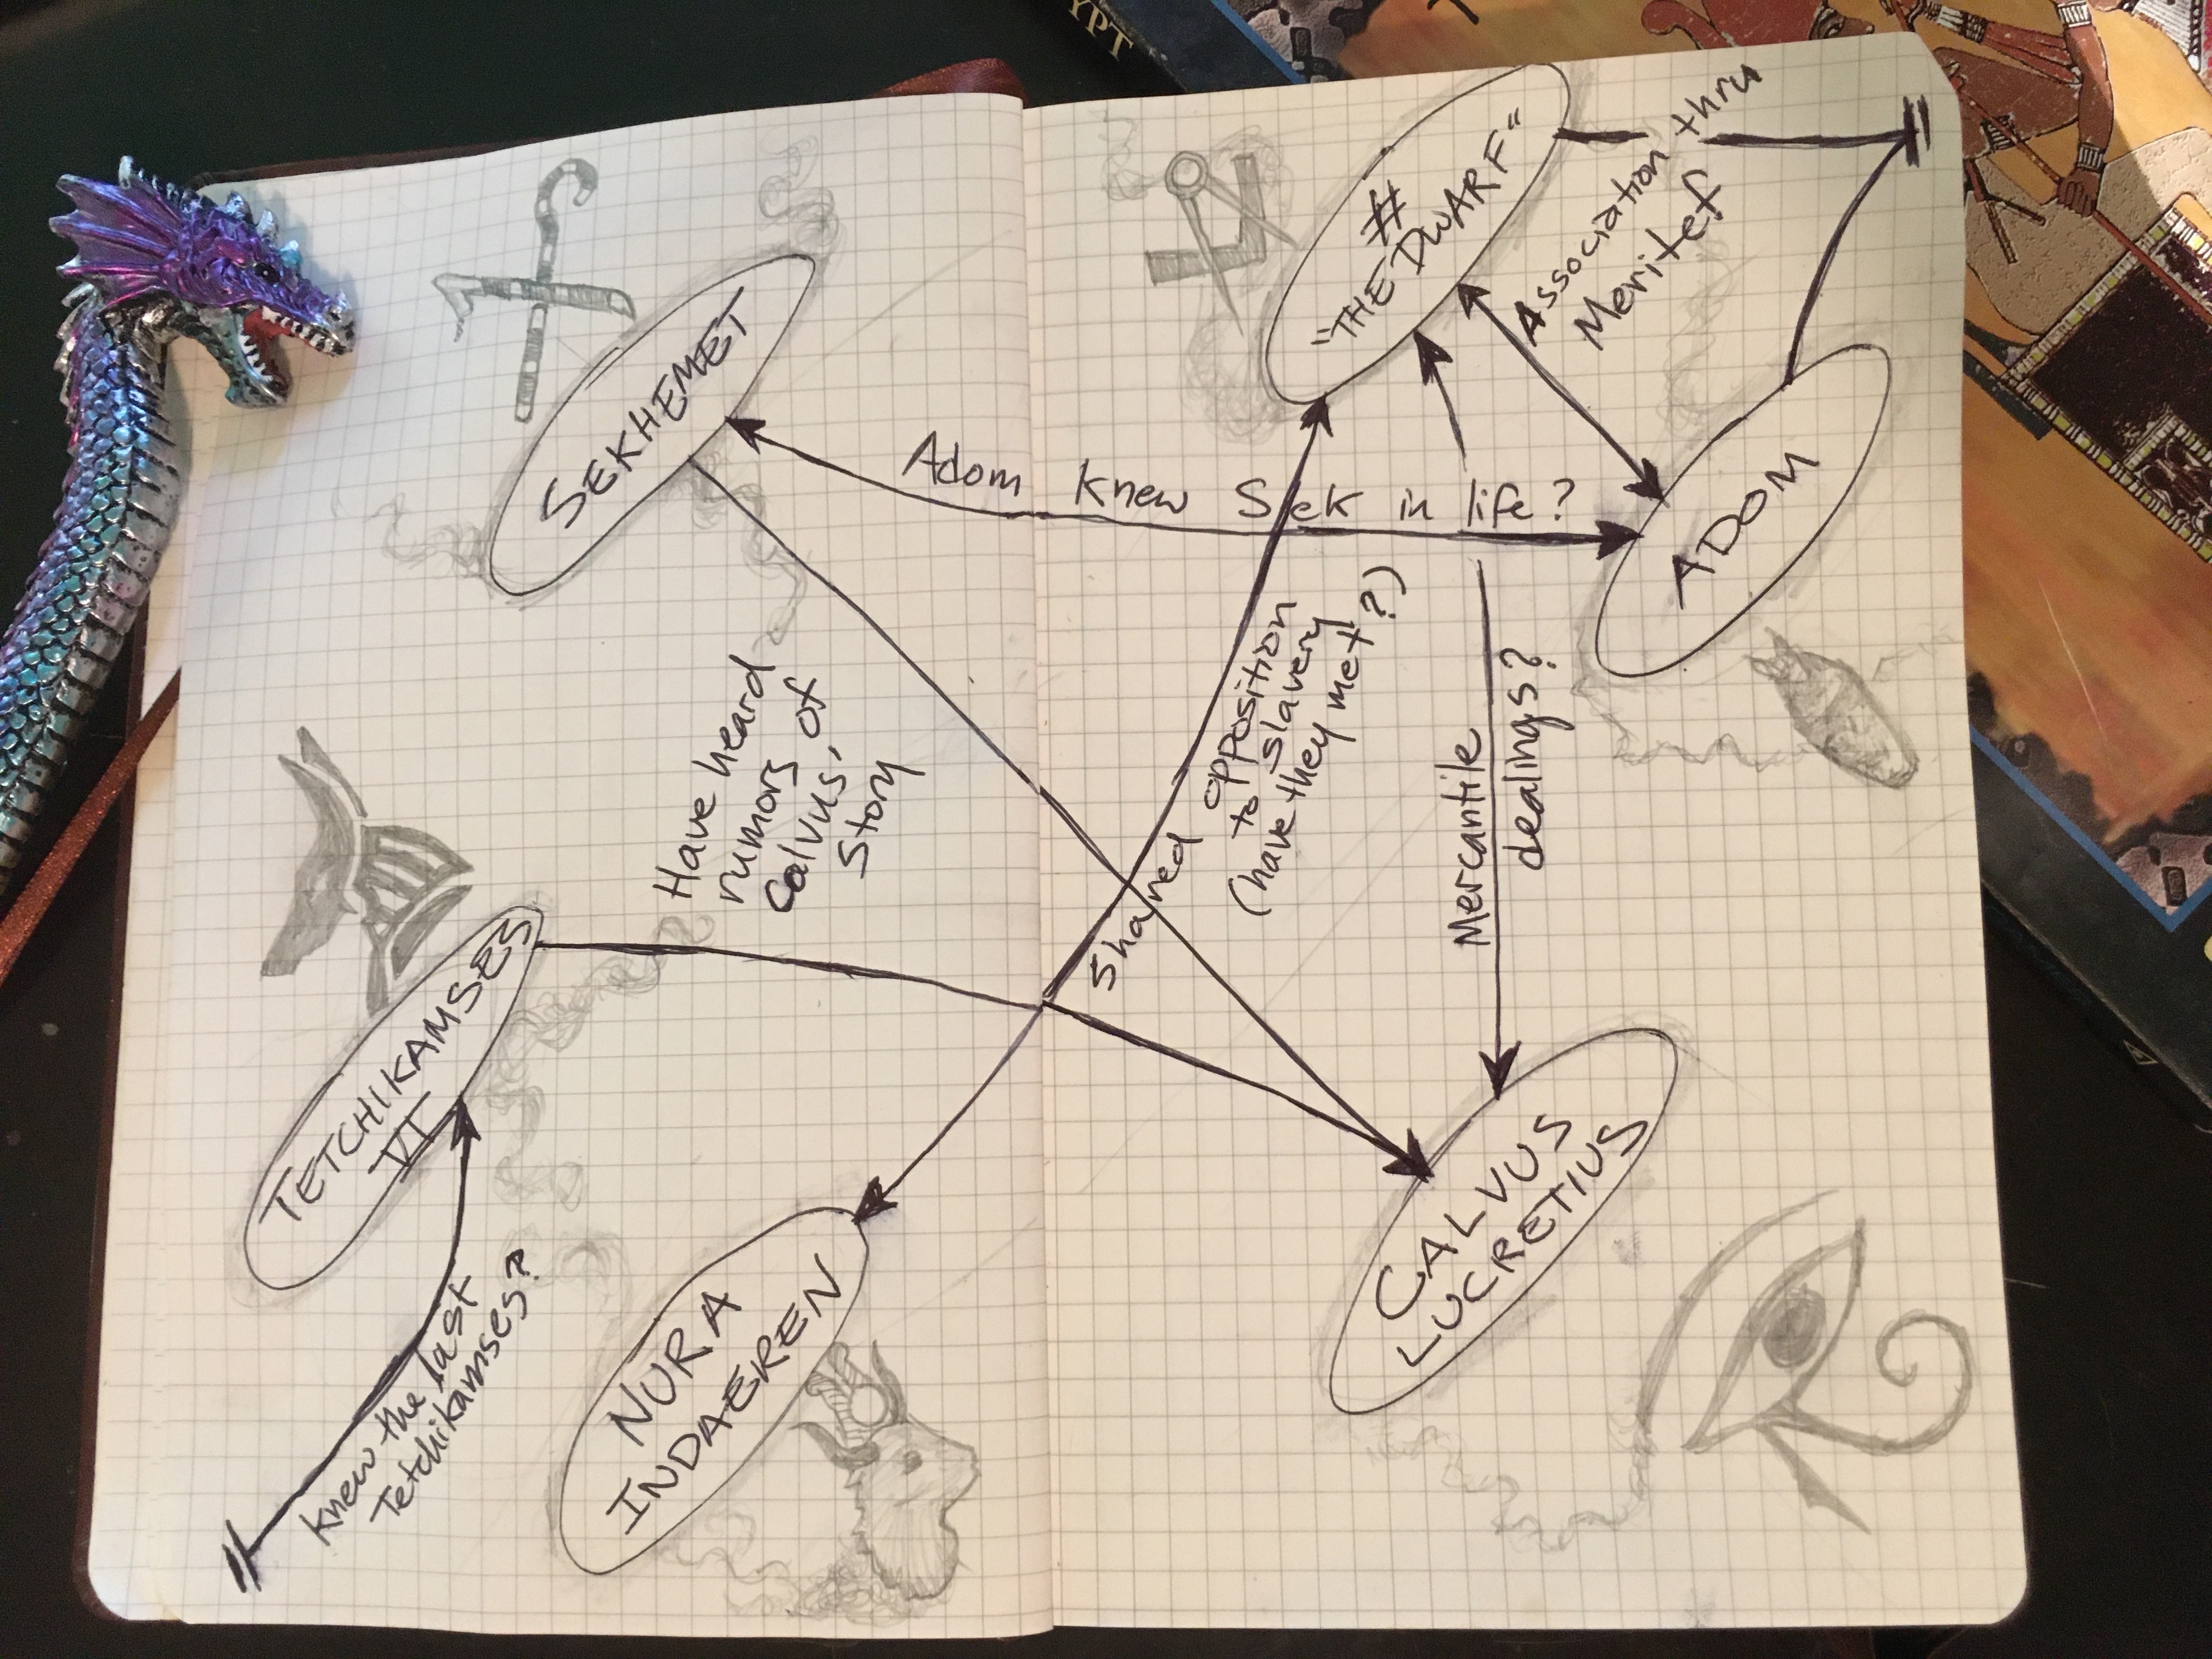 YPT
SEKHEMET
#
"THE DWARF"
Association thru
Meritef
ADOM
Adom knew Sek in life?
Have heard
rumors of
Calvus,
Story
Shared opposition
to slavery
(have they met?)
Mercantile
dealings?
TETCHIKAMSES
VI
knew the last
Tetchikamses?
NURA
INDAEREN
CALVUS
LUCRETIUS